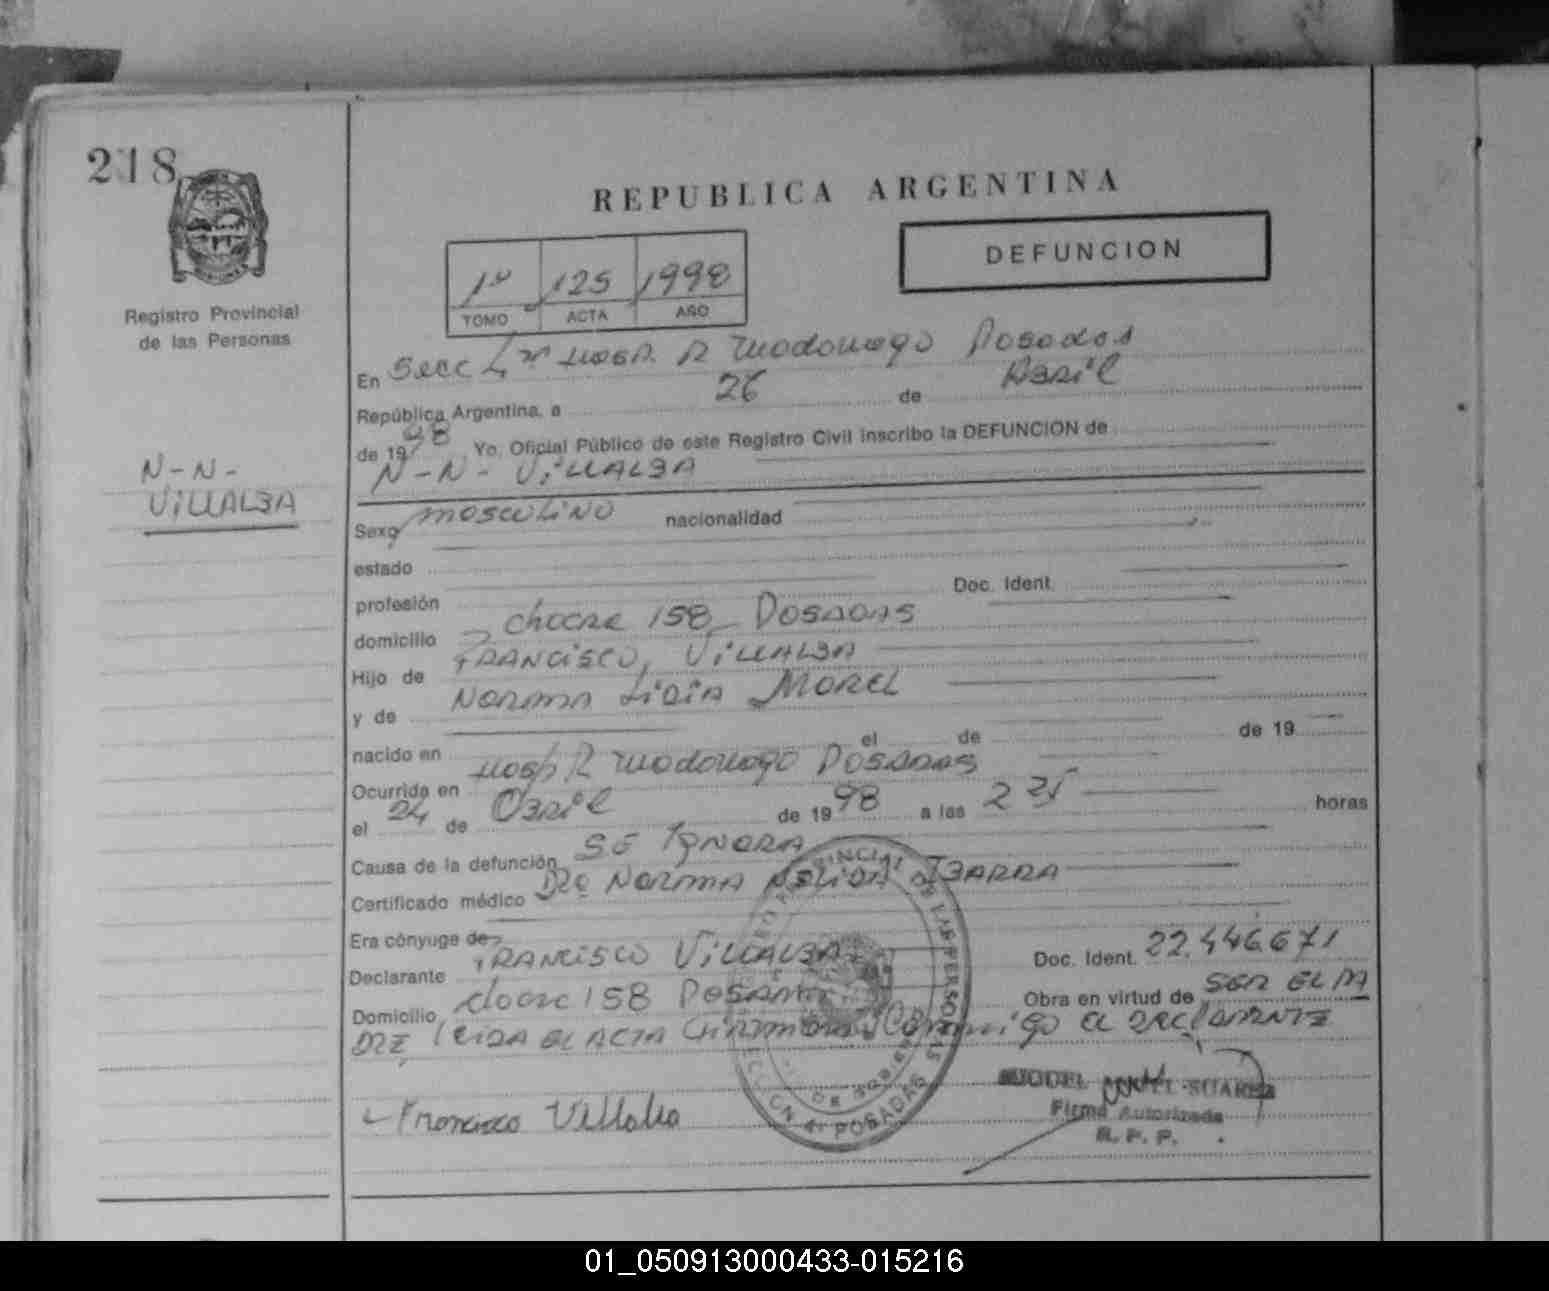 218
Registro Provincial
de las Personas
REPUBLICA ARGENTINA
DEFUNCION
1º 125 1998
TOMO ACTA AÑO
En Secc 4ª Hosp. R Madariaga Posadas
República Argentina, a 26 de Abril
de 1998 Yo, Oficial Público de este Registro Civil inscribo la DEFUNCION de
N-N- VILLALBA
N-N-
VILLALBA
Sexo masculino nacionalidad
estado
profesión Doc. Ident.
domicilio chacra 158 Posadas
Hijo de FRANCISCO, VILLALBA
y de NORMA LIDIA MOREL
nacido en el de de 19
Ocurrida en Hosp R Madariaga Posadas
el 24 de Abril de 1998 a las 2 35 horas
Causa de la defunción SE IGNORA
Certificado médico Dra NORMA NELIDA IBARRA
Era cónyuge de
Declarante FRANCISCO VILLALBA Doc. Ident. 22.446.671
Domicilio chacra 158 Posadas Obra en virtud de SER EL PA
DRE, leida el acta firma conmigo el declarante
Francisco Villalba
SUAREZ
Firma Autorizada
R. P. P.
PROVINCIAL DE LAS PERSONAS
SECCION 4ª POSADAS
01_050913000433-015216